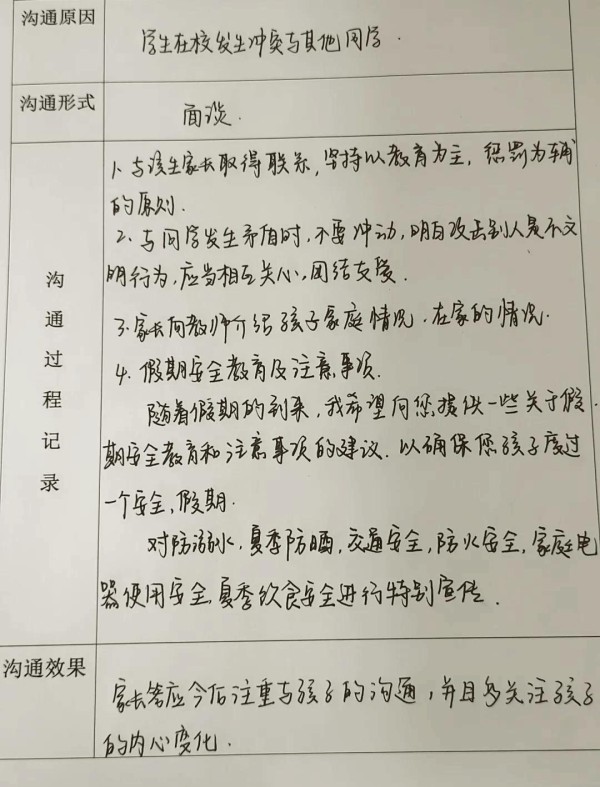 沟通原因
学生在校发生冲突与其他同学.
沟通形式
面谈.
沟通过程记录
1、与该生家长取得联系,坚持以教育为主,惩罚为辅
的原则.
2、与同学发生矛盾时,不要冲动,明白攻击别人是不文
明行为,应当相互关心,团结友爱.
3.家长向教师介绍孩子家庭情况.在家的情况.
4.假期安全教育及注意事项.
随着假期的到来,我希望向您提供一些关于假
期安全教育和注意事项的建议.以确保您孩子度过
一个安全,假期.
对防溺水,夏季防晒,交通安全,防火安全,家庭电
器使用安全.夏季饮食安全进行特别宣传.
沟通效果
家长答应今后注重与孩子的沟通,并且多关注孩子
的内心变化.